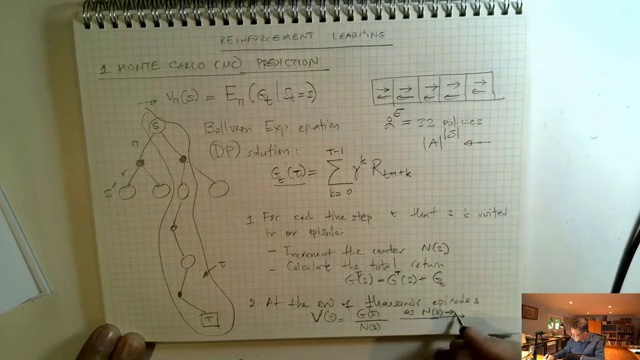 REINFORCEMENT LEARNING
1. MONTE-CARLO (MC) PREDICTION
→ V_π(s) = E_π(G_t | S_t = s)
2^5 = 32 policies
|A|^|S| ←
Bellman Exp. equation
(DP) solution:
G_t(τ) = Σ_{k=0}^{T-1} γ^k R_{t+1+k}
S
π
s' r
τ
T
1. For each time step t that s is visited
in an episode
- Increment the counter N(s)
- Calculate the total return
G^τ(s) = G^τ(s) + G_t
2. At the end of thousands episodes
V(s) = G(s) / N(s) as N(s) →